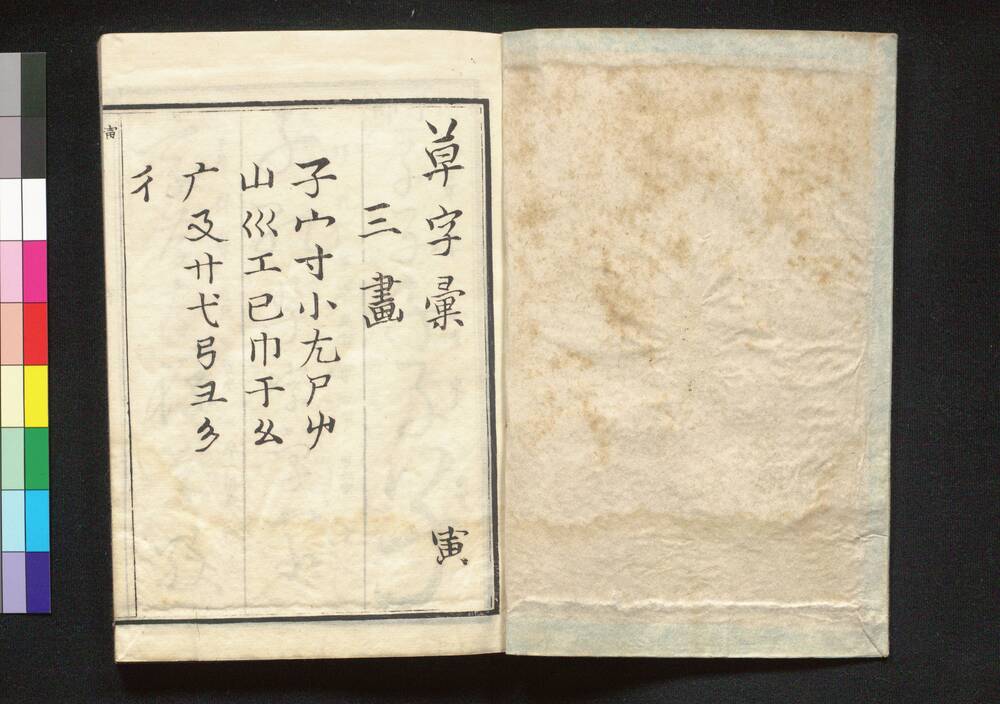 草字彙 寅
三畫
子宀寸小尢尸屮
山巛工己巾干幺
广廴廾弋弓彐彡
彳
寅